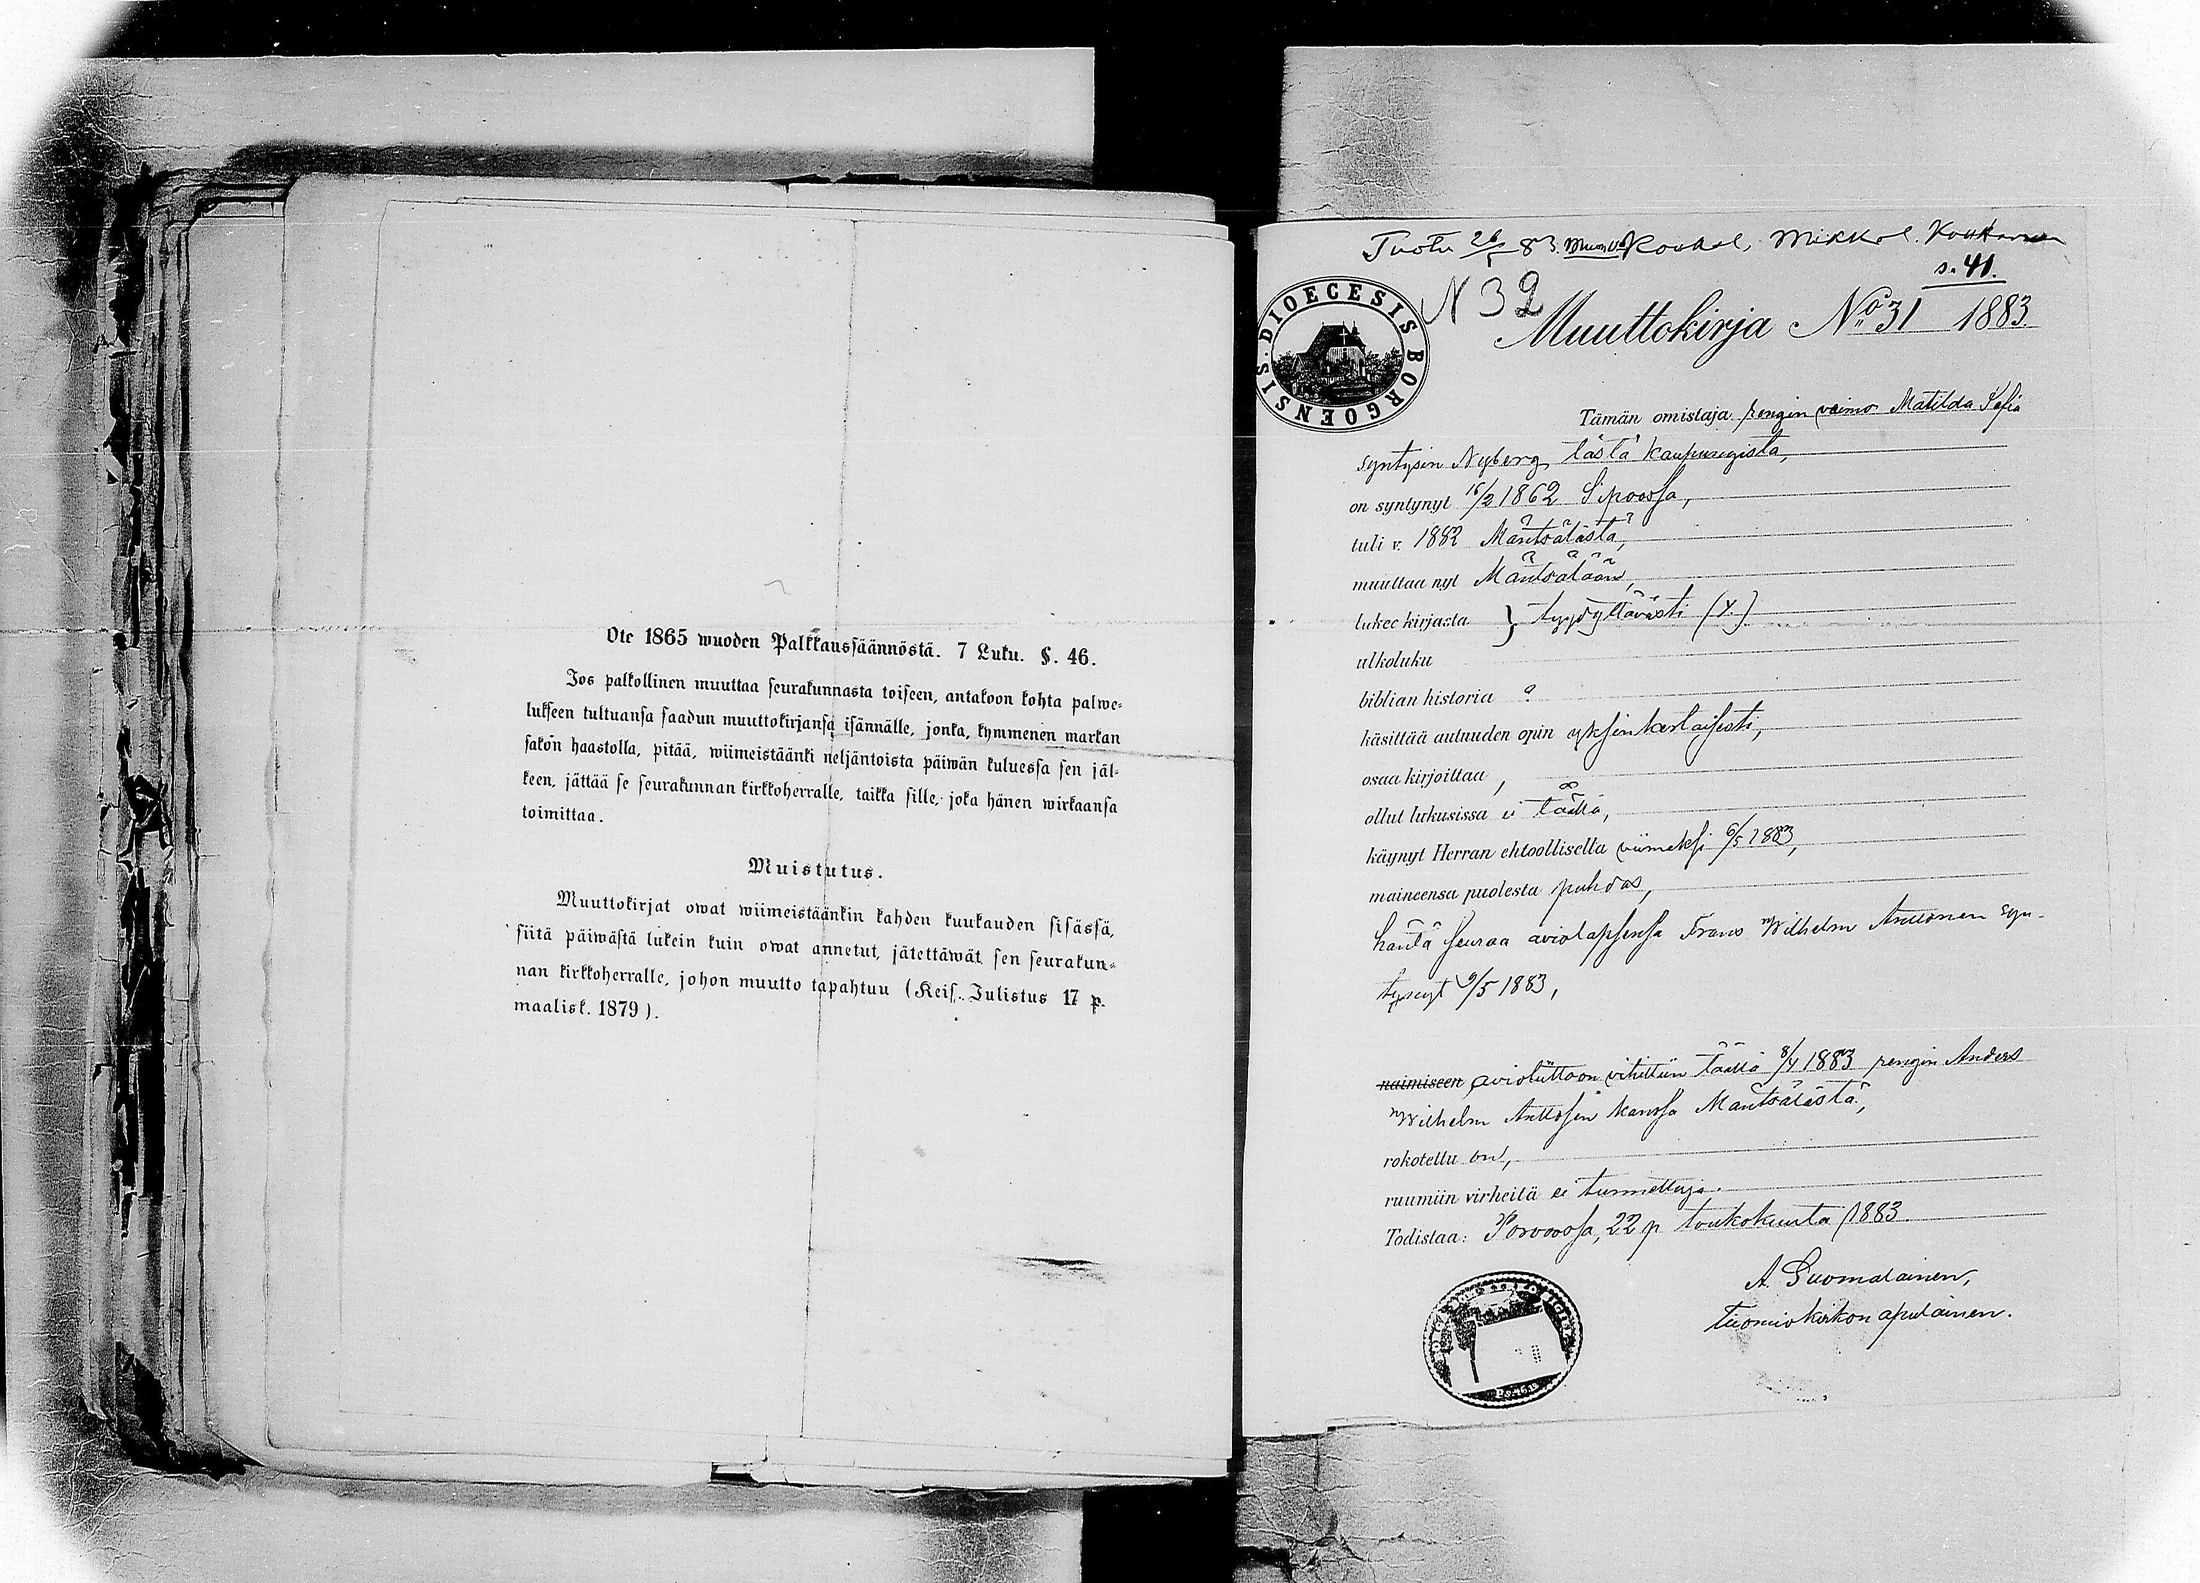 Ote 1865 wuoden Palkkaussäännöstä. 7 Luku. §. 46.
Jos palkollinen muuttaa seurakunnasta toiseen, antakoon kohta palwe-
lukseen tultuansa saadun muuttokirjansa isännälle, jonka, kymmenen markan
sakon haastolla, pitää, wiimeistäänki neljäntoista päiwän kuluessa sen jäl-
keen, jättää se seurakunnan kirkkoherralle, taikka sille, joka hänen wirkaansa
toimittaa.
Muistutus.
Muuttokirjat owat wiimeistäänkin kahden kuukauden sisässä,
siitä päiwästä lukein kuin owat annetut, jätettäwät sen seurakun-
nan kirkkoherralle, johon muutto tapahtuu (Keis. Julistus 17 p.
maalisk. 1879).
Tuotu 26/5 83. Mikkol.
s. 41.
N 32
DIOECESIS BORGOENSIS.
Muuttokirja No 31 1883
Tämän omistaja rengin vaimo Matilda Sofia
syntysin Nyberg tästä kaupungista,
on syntynyt 16/2 1862 Sipoossa,
tuli v. 1882 Mäntsälästä,
muuttaa nyt Mäntsälään,
lukee kirjasta } tyydyttävästi (y.)
ulkoluku
biblian historia
käsittää autuuden opin yksinkertaisesti,
osaa kirjoittaa ,
ollut lukusissa ei täällä,
käynyt Herran ehtoollisella viimeksi 6/5 1883,
maineensa puolesta puhdas,
häntä seuraa aviolapsensa Frans Wilhelm Anttonen syn-
tynyt 9/5 1883,
naimiseen avioliittoon vihittiin täällä 8/4 1883 rengin Anders
Wilhelm Anttosen kanssa Mäntsälästä,
rokotettu on,
ruumiin virheitä ei tunnettuja.
Todistaa: Porvoossa, 22 p toukokuuta 1883.
A. Suomalainen,
tuomiokirkon apulainen.